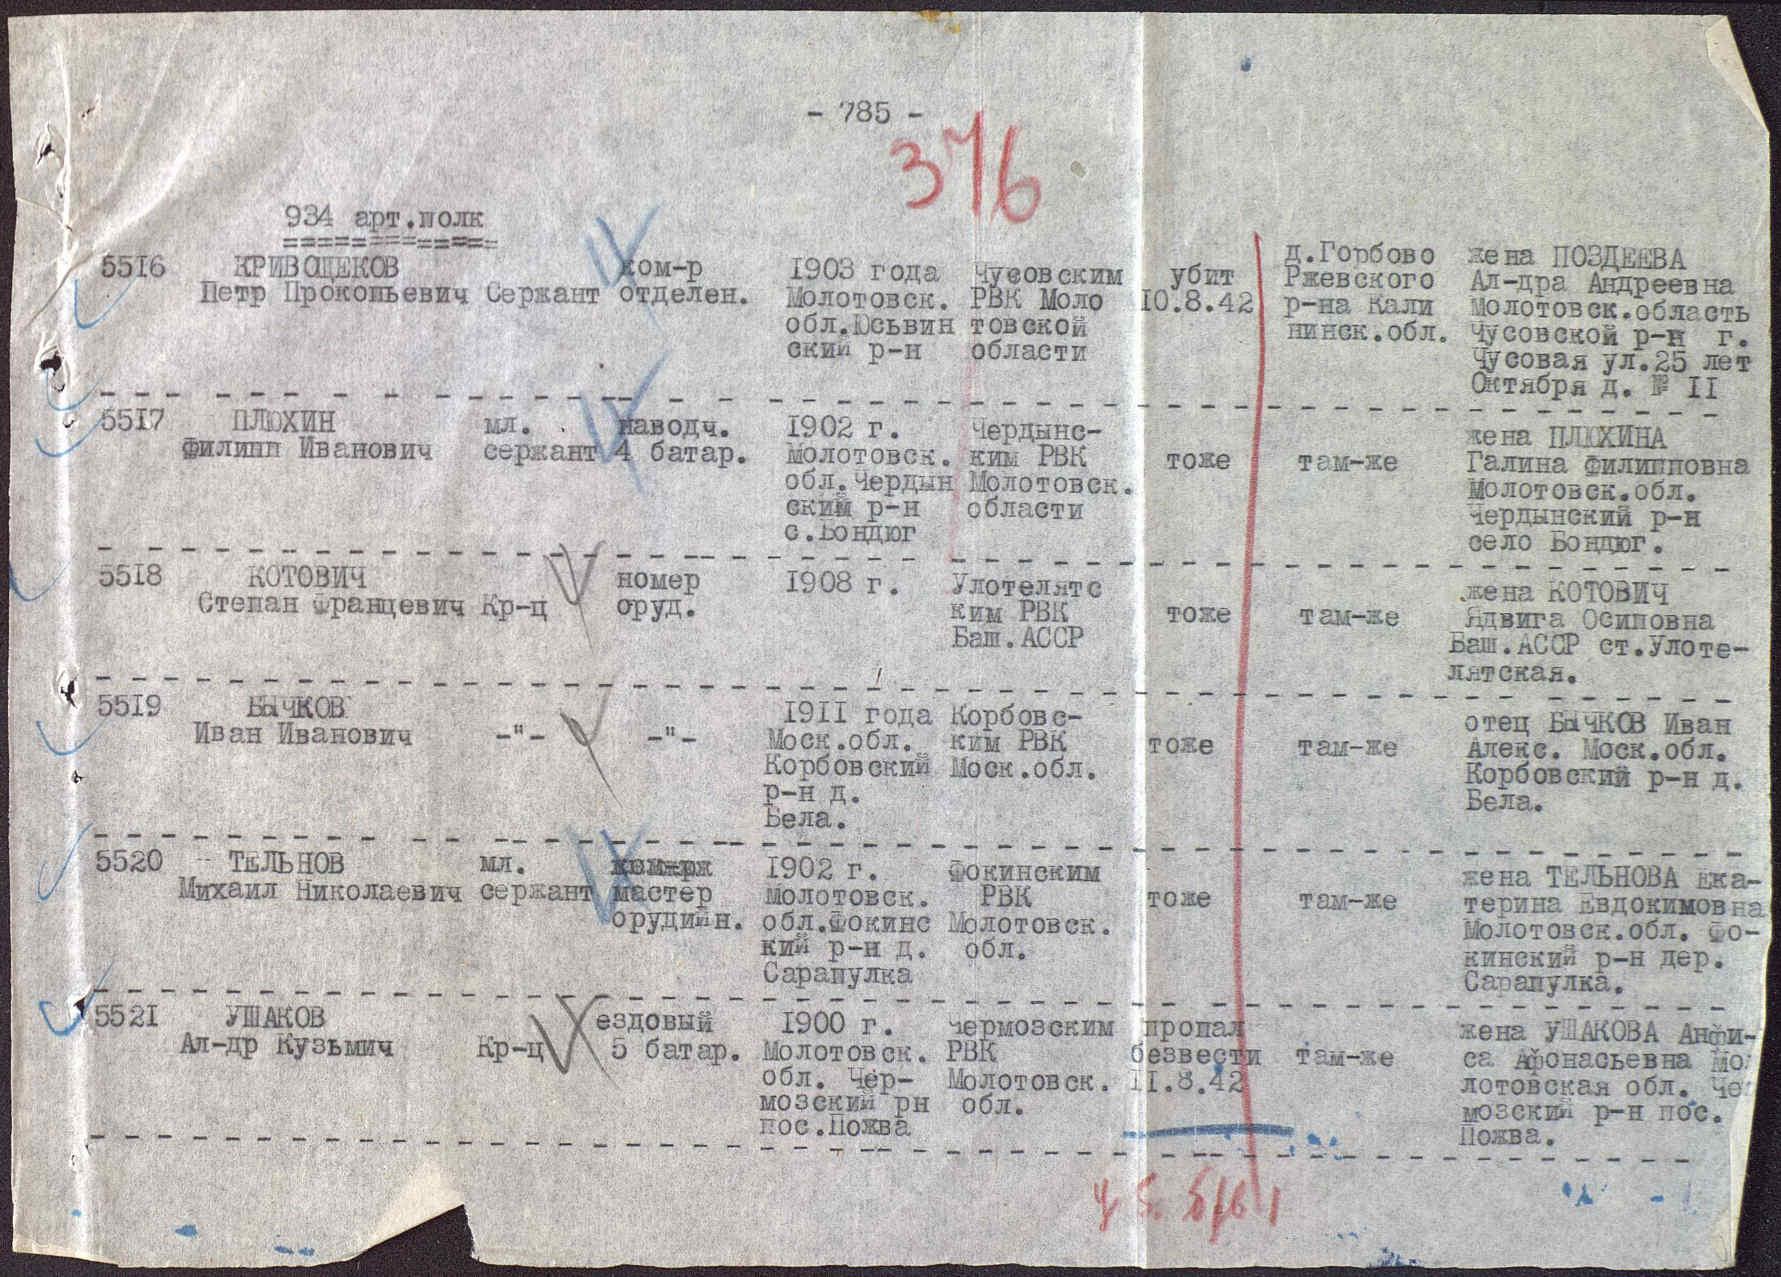 - 785 -
376
934 арт.полк
==============
5516 КРИВОЩЕКОВ ком-р 1903 года Чусовским убит д.Горбово жена ПОЗДЕЕВА
Петр Прокопьевич Сержант отделен. Молотовск. РВК Моло 10.8.42 Ржевского Ал-дра Андреевна
обл.Юсьвин товской р-на Кали Молотовск.область
ский р-н области нинск.обл. Чусовской р-н г.
Чусовая ул.25 лет
Октября д. № 11
5517 ПЛЮХИН мл. наводч. 1902 г. Чердынс- жена ПЛЮХИНА
Филипп Иванович сержант 4 батар. Молотовск. ким РВК тоже там-же Галина Филипповна
обл.Чердын Молотовск. Молотовск.обл.
ский р-н области Чердынский р-н
с.Бондюг село Бондюг.
5518 КОТОВИЧ номер 1908 г. Улотелятс жена КОТОВИЧ
Степан Францевич Кр-ц оруд. ким РВК тоже там-же Ядвига Осиповна
Баш.АССР Баш.АССР ст.Улоте-
лятская.
5519 БЫЧКОВ 1911 года Корбовс- отец БЫЧКОВ Иван
Иван Иванович -"- -"- Моск.обл. ким РВК тоже там-же Алекс. Моск.обл.
Корбовский Моск.обл. Корбовский р-н д.
р-н д. Бела.
Бела.
5520 ТЕЛЬНОВ мл. 1902 г. Фокинским жена ТЕЛЬНОВА Ека-
Михаил Николаевич сержант мастер Молотовск. РВК тоже там-же терина Евдокимовна
орудийн. обл.Фокинс Молотовск. Молотовск.обл. Фо-
кий р-н д. обл. кинский р-н дер.
Сарапулка Сарапулка.
5521 УШАКОВ ездовый 1900 г. Чермозским пропал жена УШАКОВА Анфи-
Ал-др Кузьмич Кр-ц 5 батар. Молотовск. РВК безвести там-же са Афонасьевна Мо
обл. Чер- Молотовск. 11.8.42 лотовская обл. Че
мозский рн обл. мозский р-н пос.
пос.Пожва Пожва.